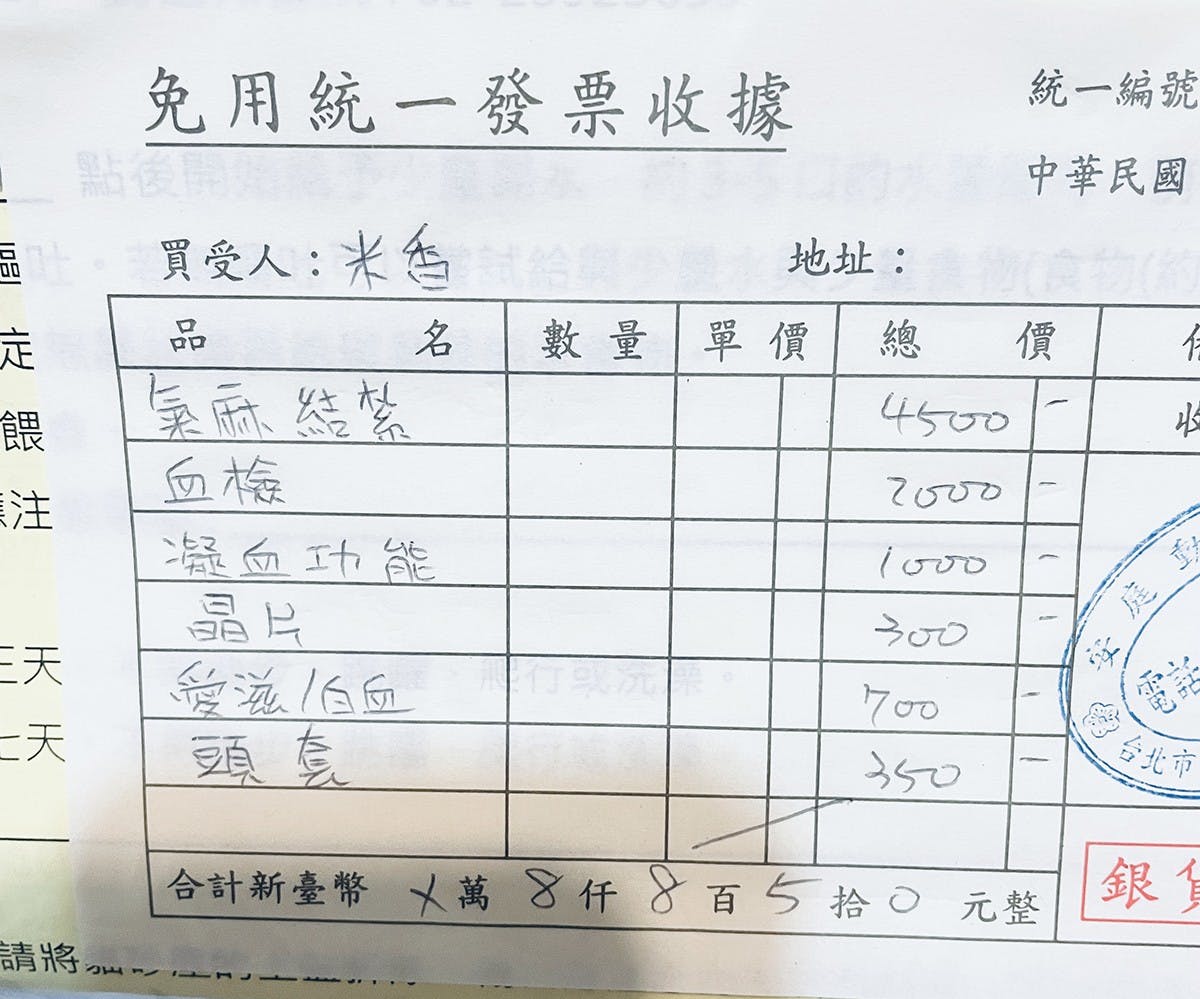 免用統一發票收據
統一編號
中華民國
買受人：米香
地址：
品名 數量 單價 總價
氣麻結紮 4500 -
收
血檢 2000 -
凝血功能 1000 -
晶片 300 -
愛滋/白血 700 -
頭套 350 -
合計新臺幣 X萬8仟8百5拾0元整
安庭動
電話
台北市
銀貨
定
餵
注
三天
七天
爬行或洗澡。
請將